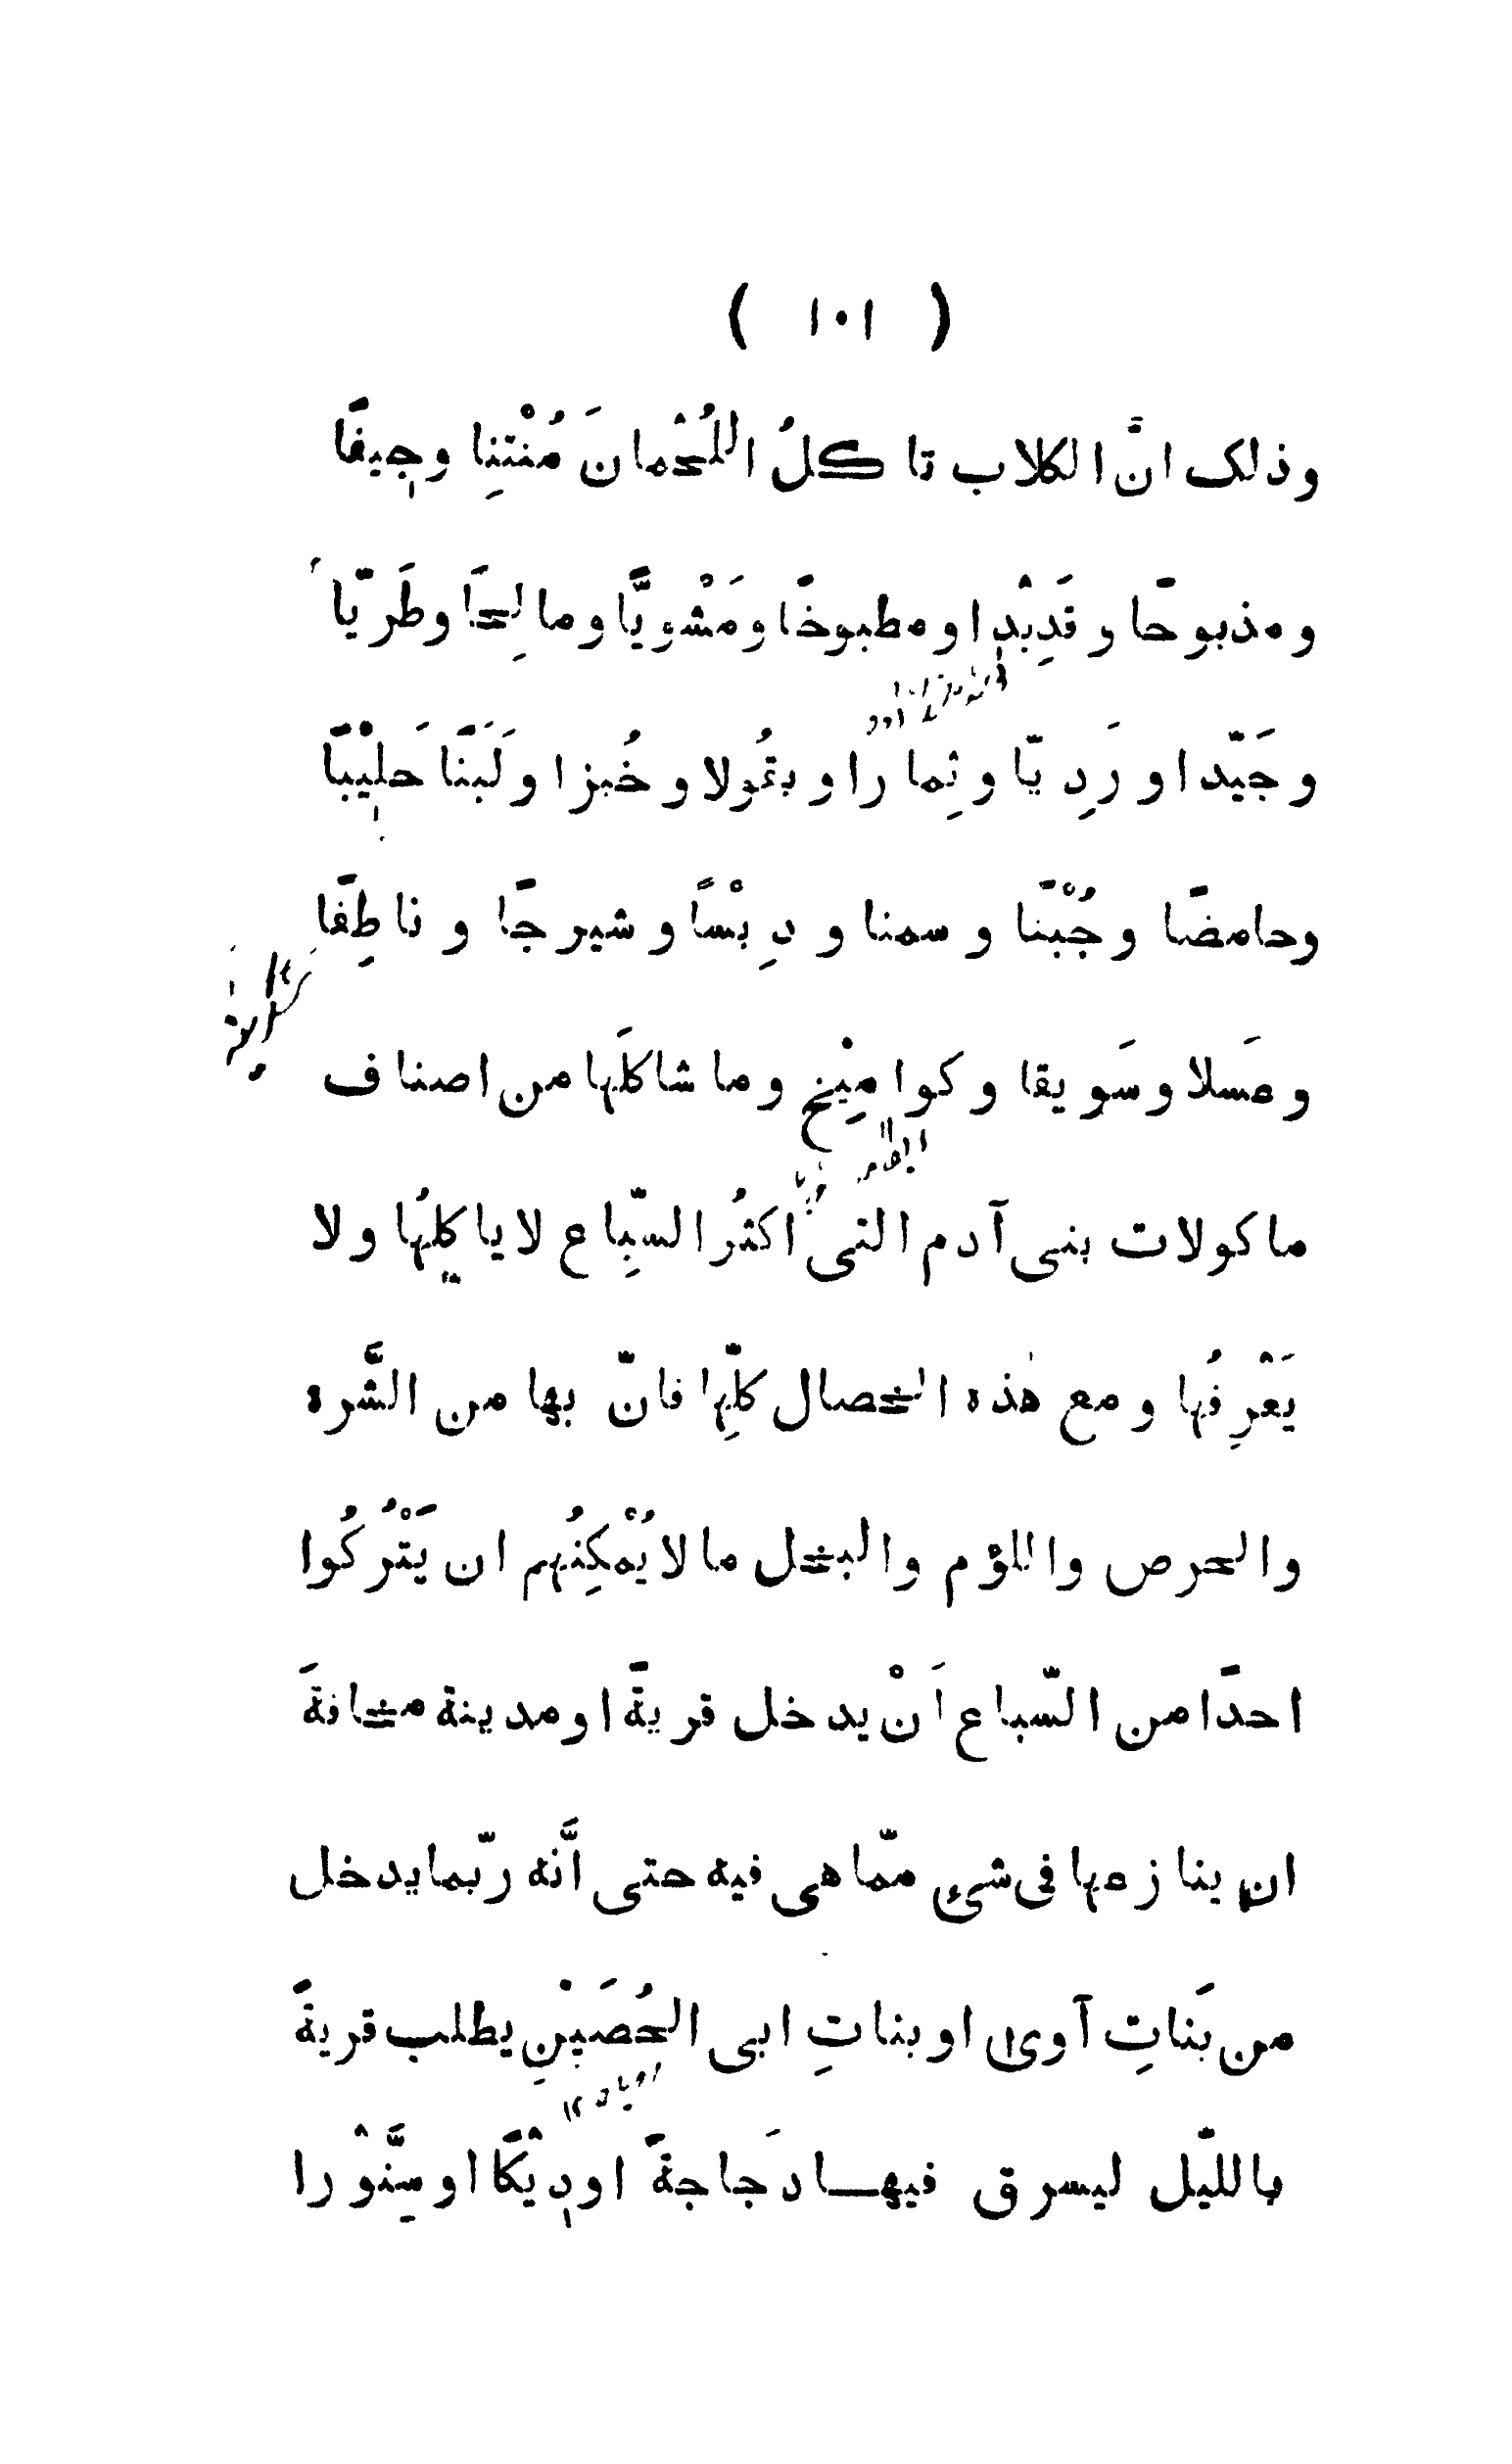 ( ١٠١ )
وذلک انَّ الکلاب تاکلُ اللُحْمانَ مُنْتِنا وجیفًا
ومذبوحًا وقَدِیْدا ومطبوخًا ومَشْویًّا ومالِحًا وطَریّا
وجَیّدا ورَدِیّا وثِمارا وبقُولا وخُبزا ولَبَنًا حَلِیْبًا
وحامضًا وجُبْنًا وسمنا ودِبْسًا وشیرجًا وناطِفًا
وعَسلا وسَویقا وکوامِیْخ وما شاکلَها من اصناف
ماکولات بنی آدم التی اکثرُ السّباع لایاکلُها ولا
یَعْرِفُها ومع هٰذه الخصال کلِّها فانّ بها من الشَّره
والحرص واللؤم والبخل مالا یُمْکِنُهم ان یَتْرُکُوا
احدًا من السّباع اَنْ یدخل قریةً او مدینة مخافةَ
ان ینازعها فی شیٔ ممّا هی فیه حتی أنَّه ربّما یدخل
من بَناتِ آویٰ او بناتِ ابی الحُصَیْنِ یطلب قریةً
باللیّل لیسرق فیهـا دَجاجةً او دِیْکًا او سِنَّوْرا